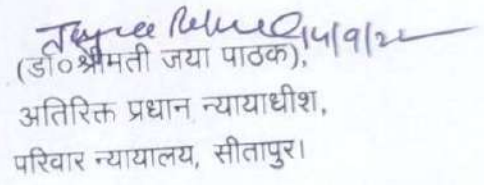 14/9/22
(डा०श्रीमती जया पाठक),
अतिरिक्त प्रधान न्यायाधीश,
परिवार न्यायालय, सीतापुर।